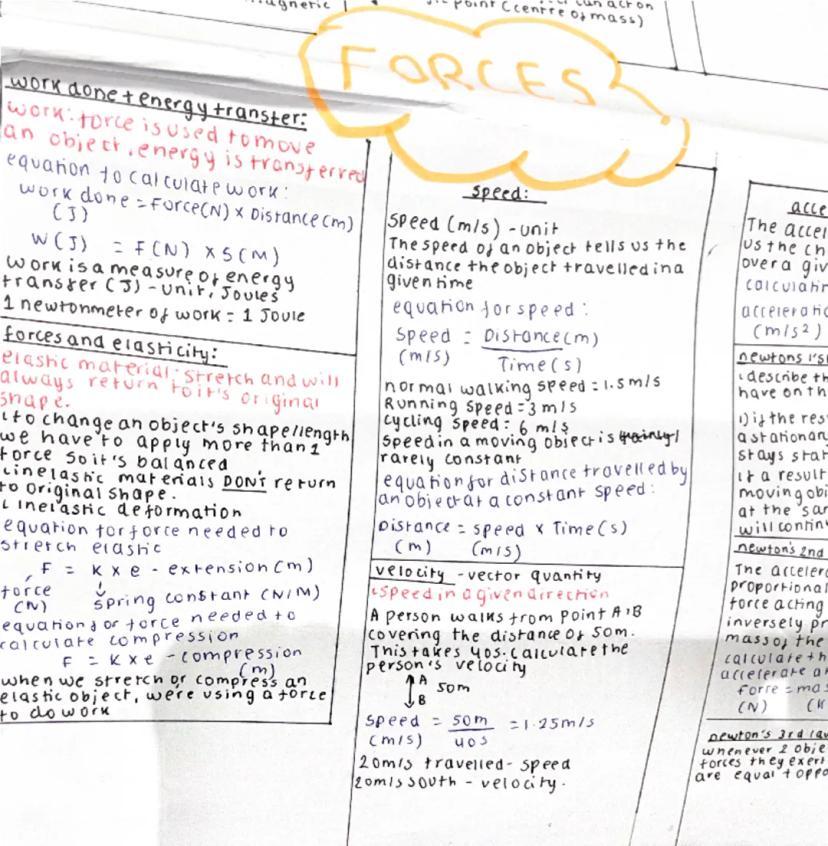 agnetic
point (centre of mass)
can act on
FORCES
work done + energy transfer:
work: force is used to move
an object, energy is transferred
equation to calculate work:
work done = Force(N) x Distance(m)
(J)
W(J) = F(N) x S(M)
work is a measure of energy
transfer (J) - unit, Joules
1 newtonmeter of work = 1 Joule
forces and elasticity:
elastic material - stretch and will
always return to it's original
shape.
to change an object's shape/length
we have to apply more than 1
force so it's balanced
inelastic materials DON'T return
to original shape.
inelastic deformation
equation for force needed to
stretch elastic
F = K x e - extension(m)
force
(N)
spring constant (N/M)
equation for force needed to
calculate compression
F = K x e - compression
(m)
when we stretch or compress an
elastic object, were using a force
to do work
speed:
speed (m/s) - unit
The speed of an object tells us the
distance the object travelled in a
given time
equation for speed:
Speed = Distance(m)
(m/s) Time(s)
normal walking speed = 1.5m/s
Running speed = 3 m/s
cycling speed: 6 m/s
speed in a moving object is
rarely constant
equation for distance travelled by
an object at a constant speed:
Distance = speed x Time(s)
(m) (m/s)
velocity - vector quantity
speed in a given direction
A person walks from point A-B
covering the distance of 50m.
This takes 40s. calculate the
person's velocity
A
50m
B
speed = 50m = 1.25m/s
(m/s) 40s
20m/s travelled - speed
20m/s south - velocity.
acce
The accel
us the ch
over a giv
calculatin
acceleratio
(m/s²)
newtons 1's
describe th
have on th
1) if the res
a stationan
stays stat
if a result
moving obj
at the sar
will contin
newton's 2nd
The accelera
proportional
force acting
inversely pr
mass of the
calculate th
accelerate an
force = mas
(N) (K
newton's 3rd law
whenever 2 obje
forces they exert
are equal + oppo